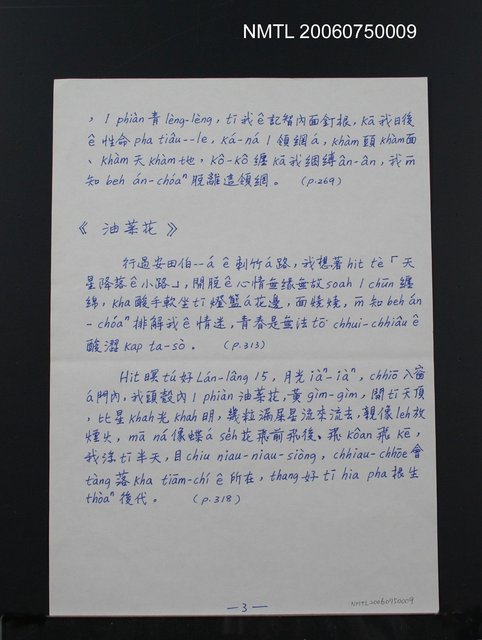 NMTL 20060750009
，1 phiàn 青 lèng-lèng，tī 我 ê 記智內面釘根，kā 我日後
ê 性命 pha tiâu--le，ká-ná 1 領網 á，khàm 頭 khàm 面
、khàm 天 khàm 地，kô-kô 纏 kā 我綑縛 ân-ân，我 m̄
知 beh án-chóaⁿ 脫離這領網。（p.269）
《油菜花》
行過安田伯--á ê 刺竹 á 路，我想著 hit tè「天
星降落 ê 小路」，開脫 ê 心情無緣無故 soah 1 chūn 纏
綿，kha 酸手軟坐 tī 燈籃 á 花邊，面燒燒，m̄ 知 beh án
-chóaⁿ 排解我 ê 情迷，青春是無法 tō͘ chhui-chhiâu ê
酸澀 kap ta-sò。（p.313）
Hit 暝 tú 好 Lán-lâng 15，月光 iàⁿ-iàⁿ，chhiō 入窗
á 門內，我頭殼內 1 phiàn 油菜花，黃 gìm-gìm，開 tī 天頂
，比星 khah 光 khah 明，幾粒滿屎星流來流去，親像 leh 放
煙火，mā ná 像蝶 á se̍h 花飛前飛後、飛 kôan 飛 kē，
我 tī 半天，目 chiu niau-niau-siòng，chhiau-chhōe 會
tàng 落 kha tiām-chí ê 所在，thang 好 tī hia pha 根生
thòaⁿ 後代。（p.318）
—3—
NMTL20060750009